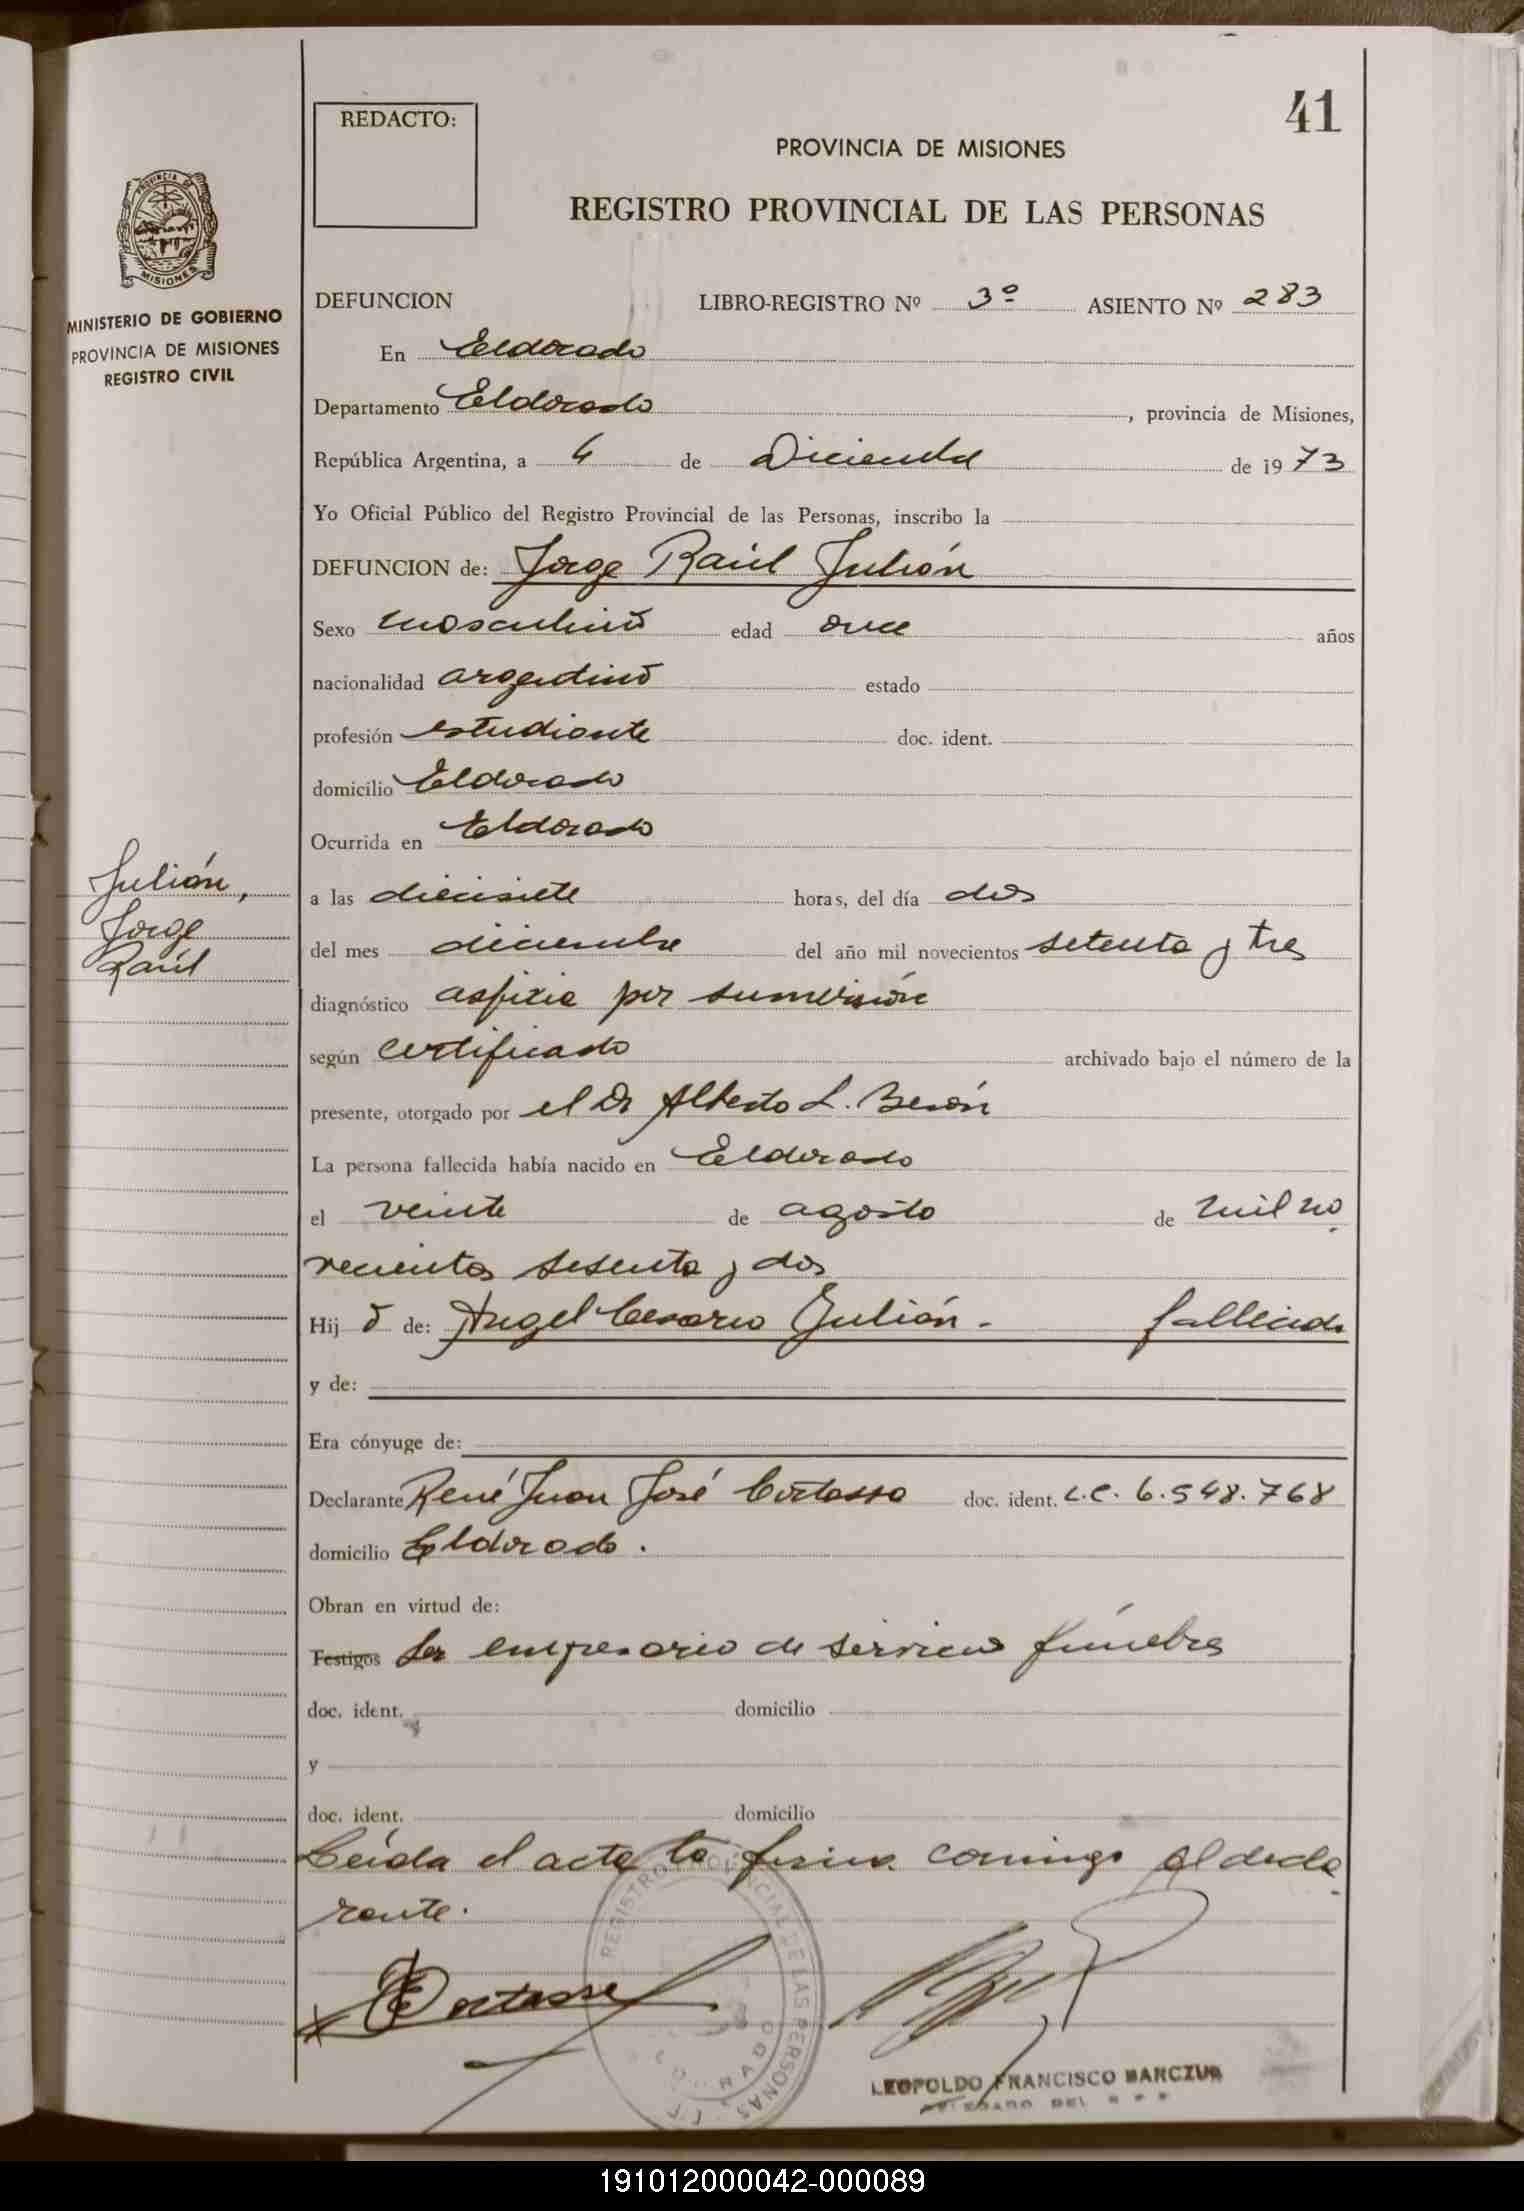 41
REDACTO:
PROVINCIA DE MISIONES
REGISTRO PROVINCIAL DE LAS PERSONAS
PROVINCIA DE
MISIONES
MINISTERIO DE GOBIERNO
PROVINCIA DE MISIONES
REGISTRO CIVIL
DEFUNCION LIBRO-REGISTRO Nº 3º ASIENTO Nº 283
En Eldorado
Departamento Eldorado, provincia de Misiones,
República Argentina, a 4 de Diciembre de 1973
Yo Oficial Público del Registro Provincial de las Personas, inscribo la
DEFUNCION de: Jorge Raúl Julión
Sexo masculino edad once años
nacionalidad argentino estado
profesión estudiante doc. ident.
domicilio Eldorado
Ocurrida en Eldorado
Julión,
Jorge
Raúl
a las diecisiete horas, del día dos
del mes diciembre del año mil novecientos setenta y tres
diagnóstico asfixia por sumersión
según certificado archivado bajo el número de la
presente, otorgado por el Dr Alberto L. Berón
La persona fallecida había nacido en Eldorado
el veinte de agosto de mil no
vecientos sesenta y dos
Hij o de: Angel Cesareo Julión - fallecido
y de:
Era cónyuge de:
Declarante René Juan José Cortasso doc. ident. L.E. 6.548.768
domicilio Eldorado.
Obran en virtud de:
Testigos Ser empresario de servicios fúnebres
doc. ident. domicilio
y
doc. ident. domicilio
Leída el acta la firma conmigo el decla
rante.
REGISTRO PROVINCIAL DE LAS PERSONAS
LEOPOLDO FRANCISCO MARCZUK
DELEGADO DEL R P P
191012000042-000089